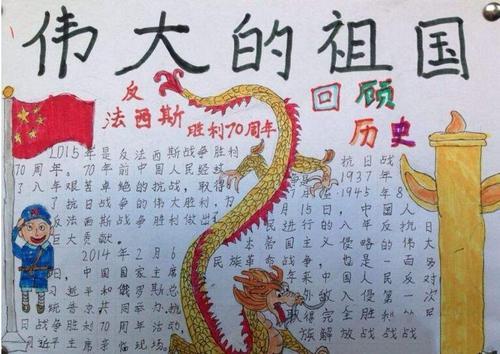 伟大的祖国
反
法西斯
胜利70周年
回顾
历史
2015年是反法西斯战争胜利
70周年。70年前中国人民经过
了八年艰苦卓绝的抗战，取得
了抗日战争的伟大胜利，为
反法西斯战争胜利做出了
巨大贡献。
2014年2月6
日，中国国家主席
习近平和俄罗斯总
统普京共同
日战争胜利70周年活动，
近平主席亲临现场。
抗日战
1937年
1945年8
月15日，中国人
民进行的 年反抗日
本帝国主义侵略的一 大
民族革命战争，也是一百多
年来中国人民反对
敌入侵第一次
取得完全胜利的
族解放战